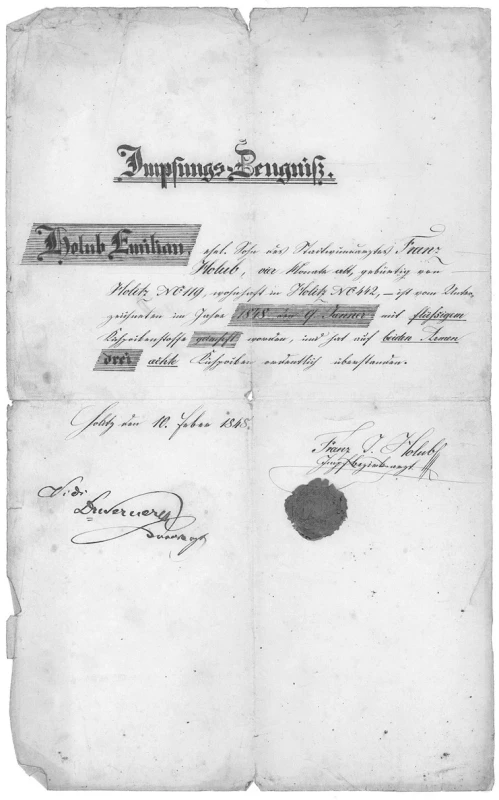 Impfungs-Zeugniß.
Holub Emilian ehel. Sohn des Stadtwundarztes Franz
Holub, vier Monate alt, gebürtig von
Holitz NC 119, wohnhaft in Holitz NC 442, – ist vom Unter-
zeichneten im Jahre 1848 den 9. Jänner mit flüßigem
Kuhpockenstoffe geimpft worden, und hat auf beiden Armen
drei ächte Kuhpocken ordentlich überstanden.
Holitz den 10. Feber 1848.
Franz J. Holub
Impfbezirksarzt
Vidi